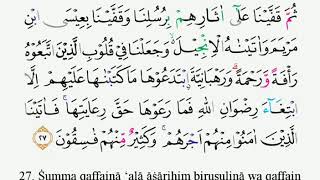 ثُمَّ قَفَّيْنَا عَلٰٓى اٰثَارِهِمْ بِرُسُلِنَا وَقَفَّيْنَا بِعِيْسَى
ابْنِ مَرْيَمَ وَاٰتَيْنٰهُ الْاِنْجِيْلَ ەۙ وَجَعَلْنَا فِيْ قُلُوْبِ الَّذِيْنَ اتَّبَعُوْهُ
رَأْفَةً وَّرَحْمَةً ۗوَرَهْبَانِيَّةَ ِۨابْتَدَعُوْهَا مَا كَتَبْنٰهَا عَلَيْهِمْ اِلَّا
ابْتِغَاۤءَ رِضْوَانِ اللّٰهِ فَمَا رَعَوْهَا حَقَّ رِعَايَتِهَا ۚفَاٰتَيْنَا
الَّذِيْنَ اٰمَنُوْا مِنْهُمْ اَجْرَهُمْ ۚ وَكَثِيْرٌ مِّنْهُمْ فٰسِقُوْنَ ٢٧
27. Ṡumma qaffainā ‘alā āṡārihim birusulinā wa qaffain